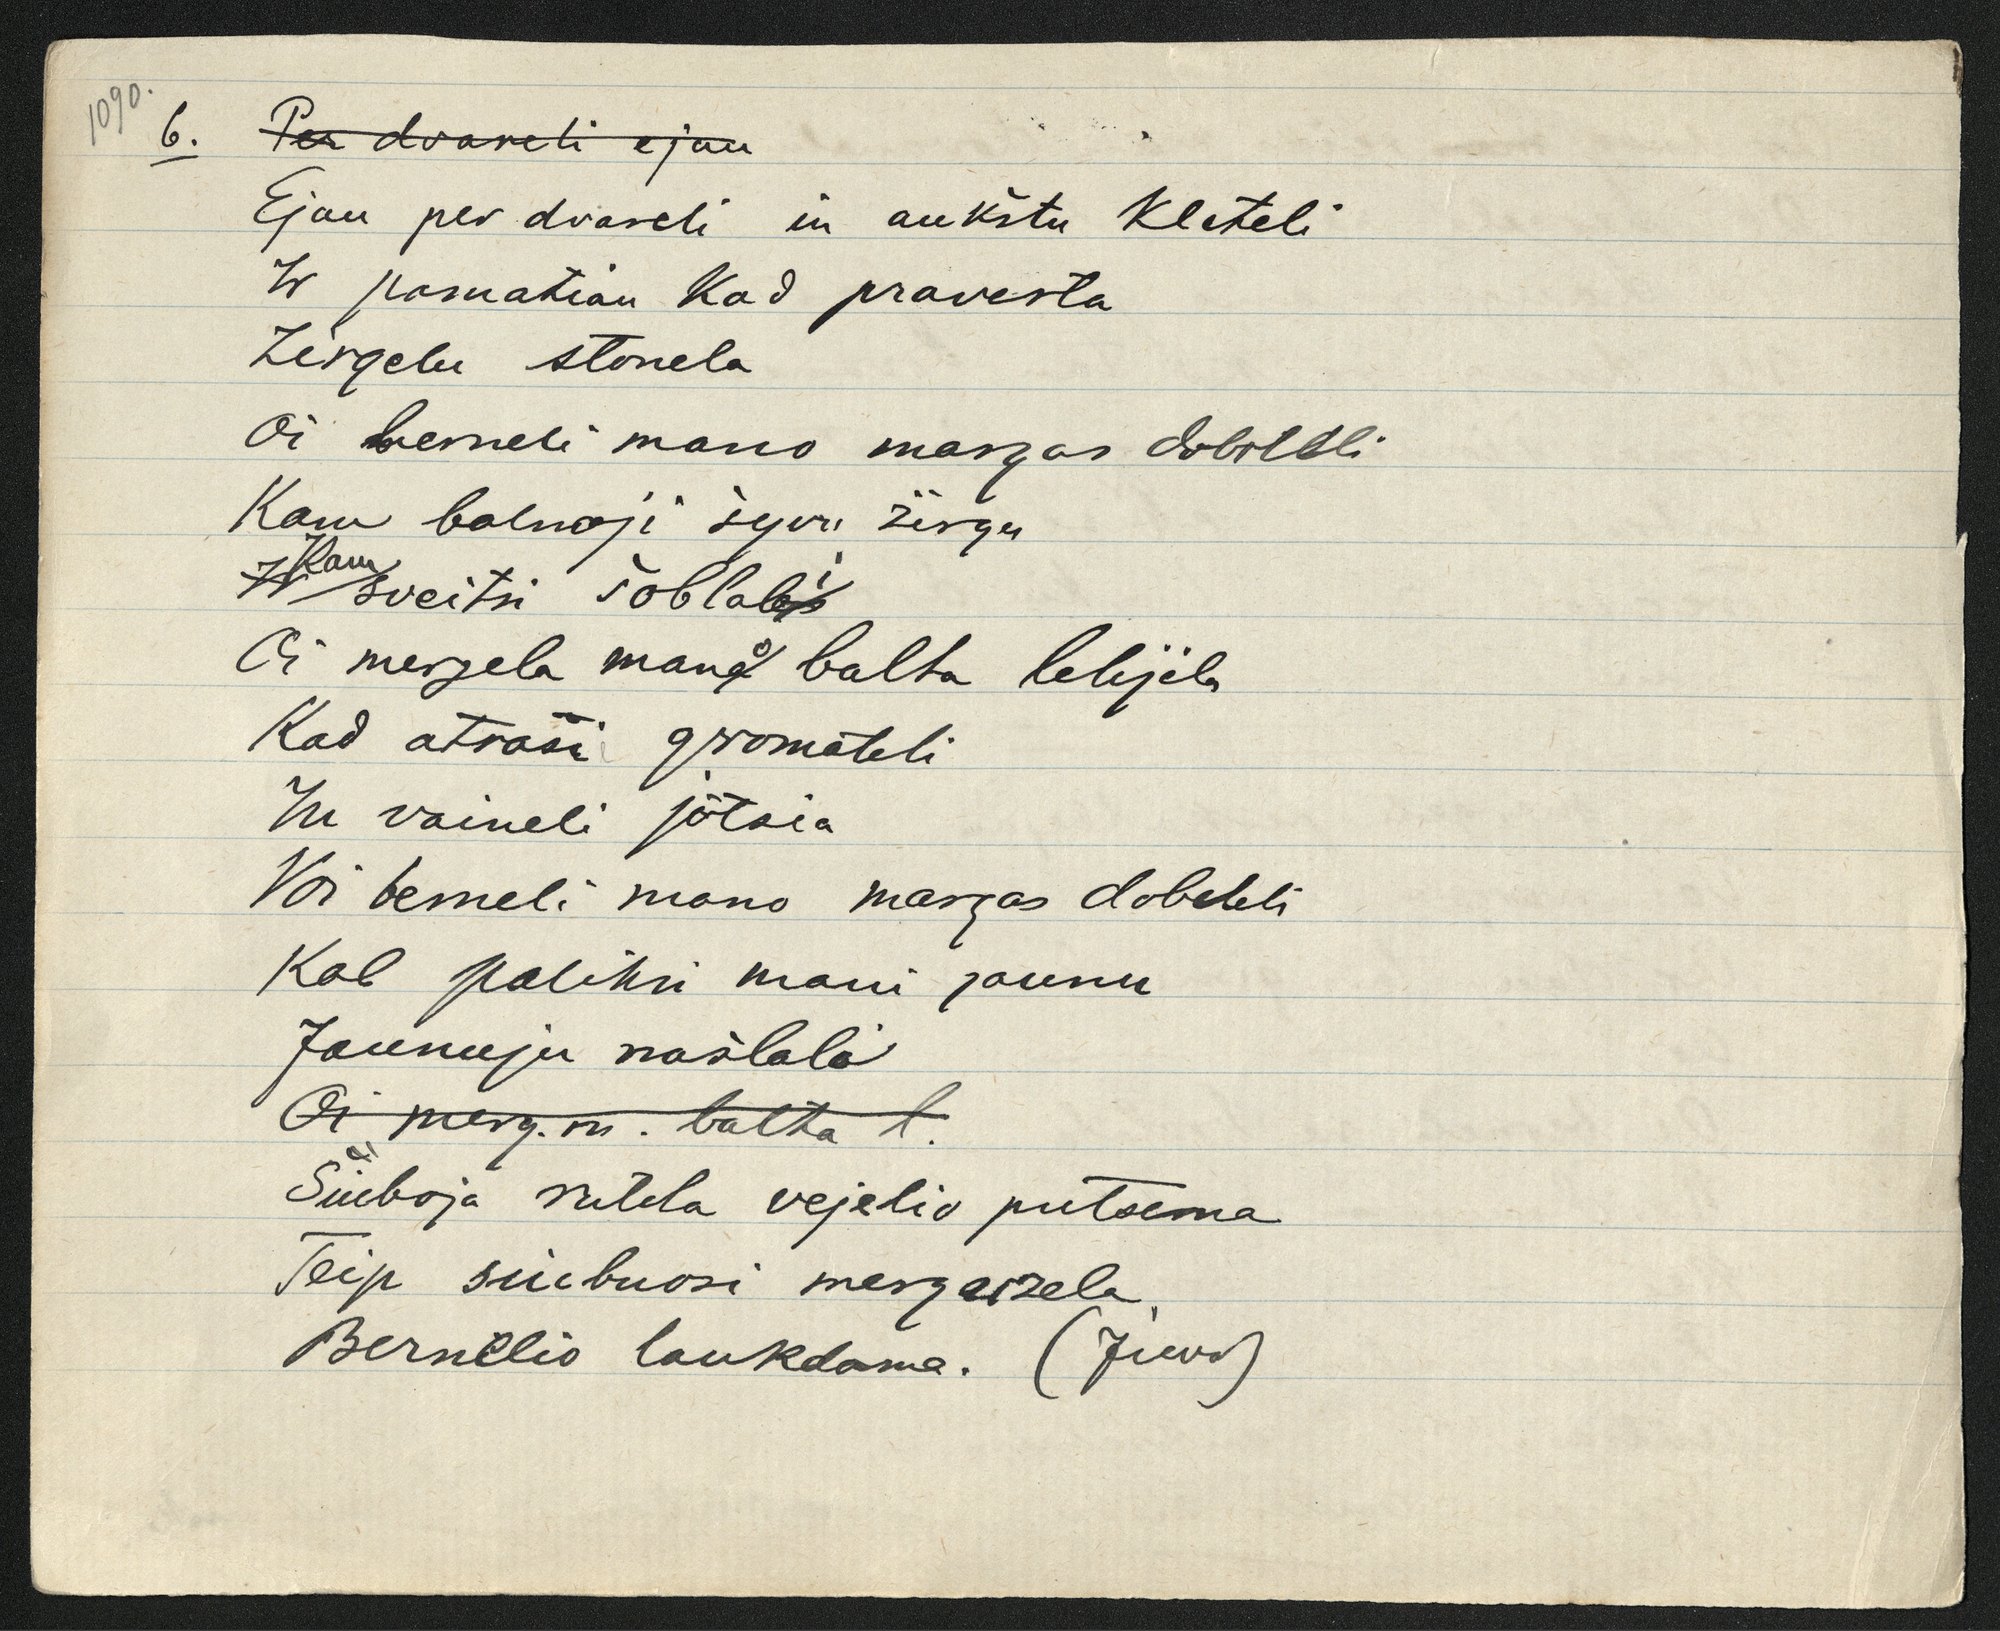 1090.
6. Per dvareli ejau
Ejau per dvareli in aukštu kleteli
Ir pamatiau kad pravesta
Žirgelu stonela
Oi berneli mano margas dobileli
Kam balnoji žirgu
Kam sveitri šoblali
Oi mergela mano balta lelijela
Kad atraši gromateli
In vaineli jotsia
Voi berneli mano margas dobeleli
Kab paliksi mani jaunu
Jaunuju našlali
Oi merg. m. balta l.
Siuboja rutela vejelio putsema
Teip siubuosi mergazela
Bernelio laukdama.